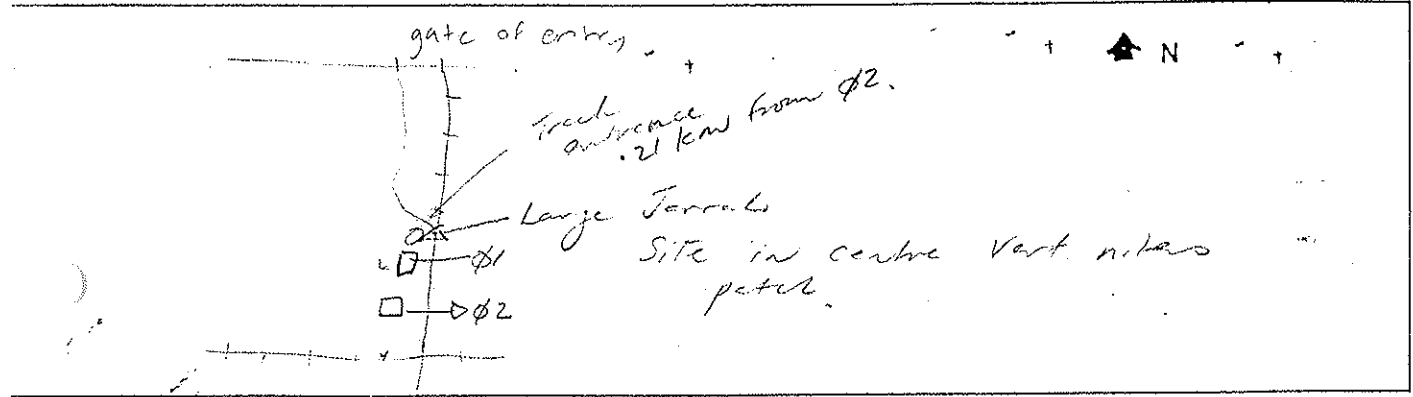 gate of entry
N
Track
entrance
.21 km from Ø2.
Large Jarrah
Site in centre Vert nitens
patch.
Ø1
Ø2